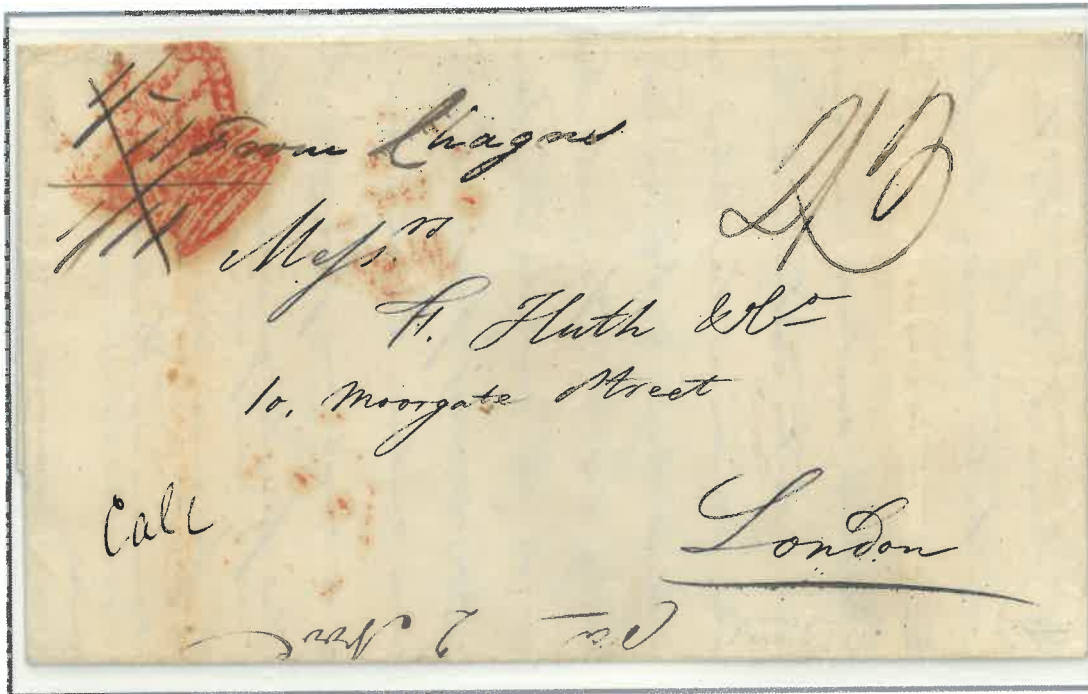 From Chagres
2/3
Mess.rs
F. Huth & Co
10, Moorgate Street
London